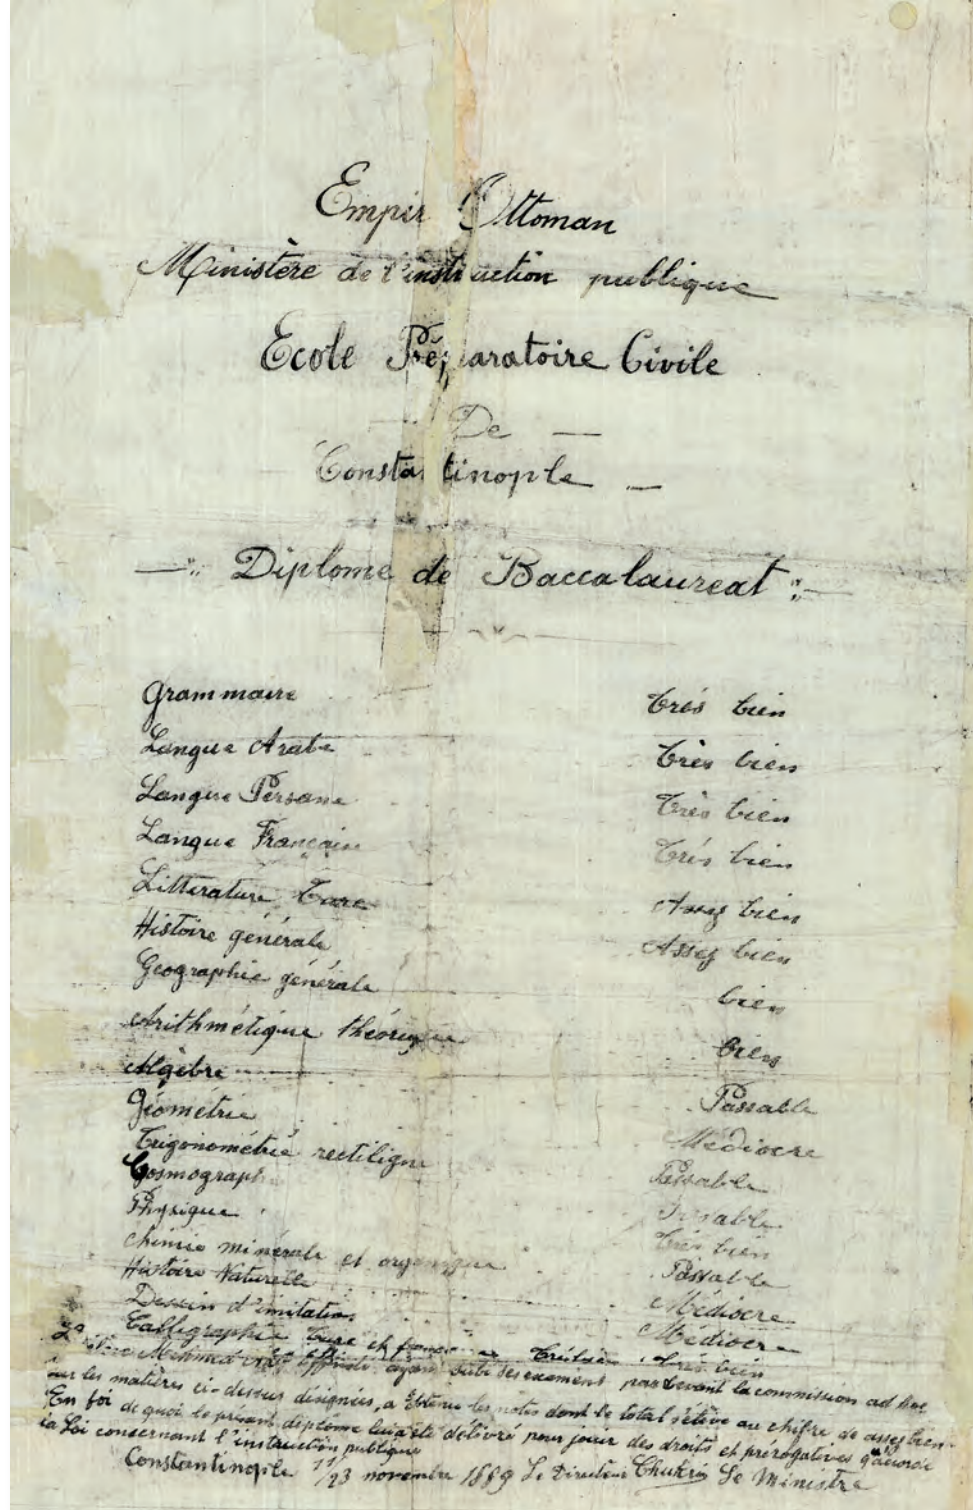 Empir Ottoman
Ministère de l'instruction publique
Ecole Préparatoire Civile
De
Constantinople
Diplome de Baccalaureat
Grammaire Trés bien
Langue Arabe Très bien
Langue Persane Très bien
Langue Française Trés bien
Litterature Turc Assez bien
Histoire générale Assez bien
Géographie générale bien
Arithmétique théorique bien
Algèbre Passable
Géometrie Médiocre
Trigonométrié rectiligne Passable
Cosmograph Passable
Physique Trés bien
Chimie minérale et organique Passable
Histoire Naturelle Médiocre
Dessin d'imitation Médiocre
Calligraphie turc et Trés bien
Mehmed Effendi ayant subi ses examens par devant la commission ad hoc
sur les matières ci-dessus désignées, a obtenu les notes dont le total s'élève au chifre de assez bien
En foi de quoi le présent diplome lui a été délivré pour jouir des droits et prérogatives qu'accorde
la Loi concernant l'instruction publique
Constantinople 11/23 novembre 1889 Le Directeur Chukri Le Ministre